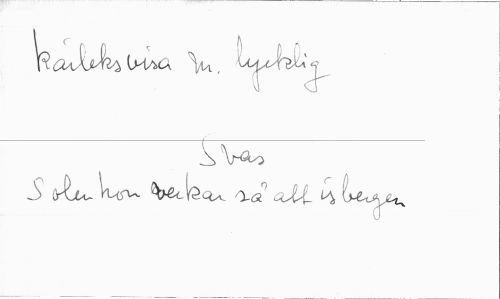 kärleksvisa m. lycklig
Svas
Solen hon verkar så att isbergen